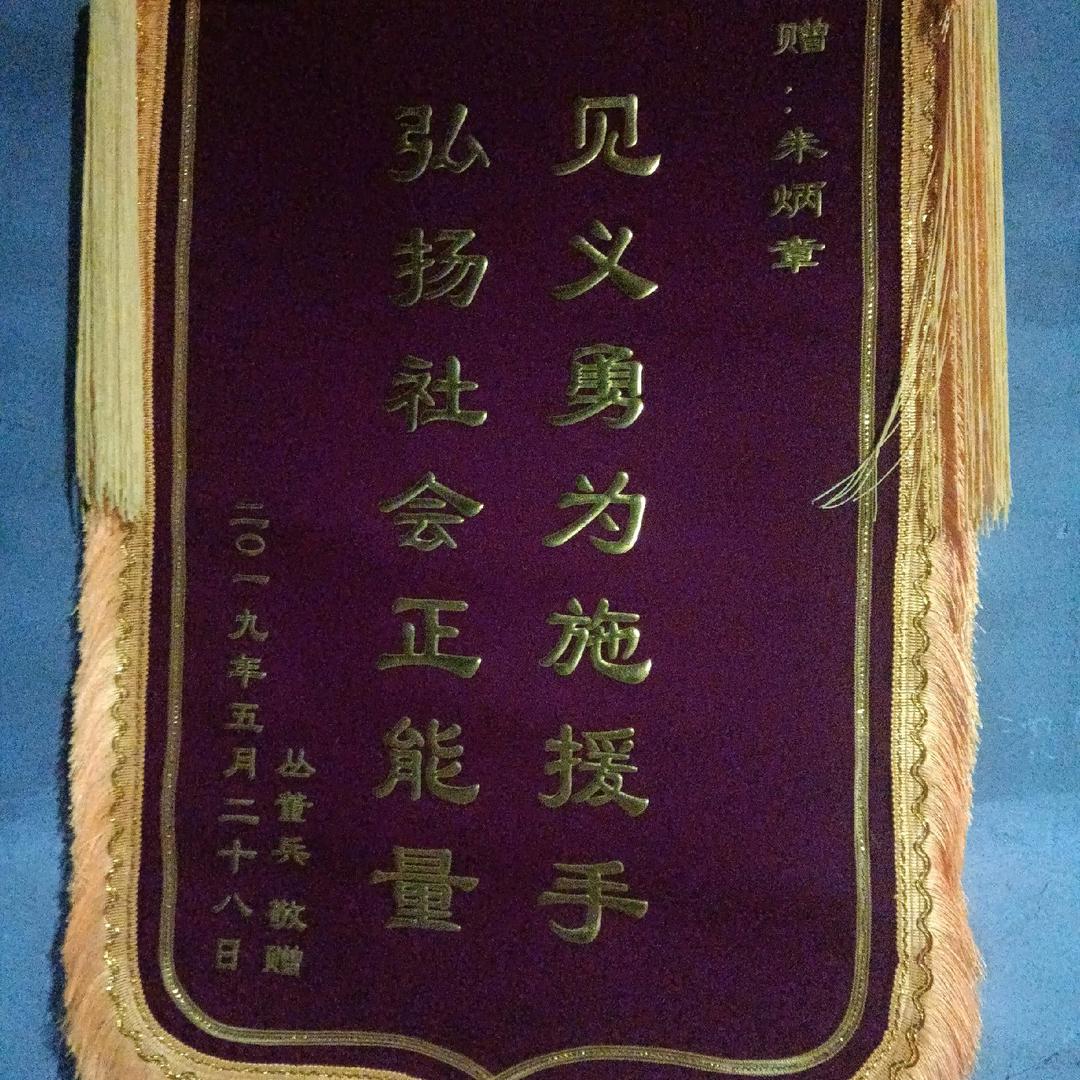 赠：朱炳章
见义勇为施援手
弘扬社会正能量
丛董兵 敬赠
二〇一九年五月二十八日